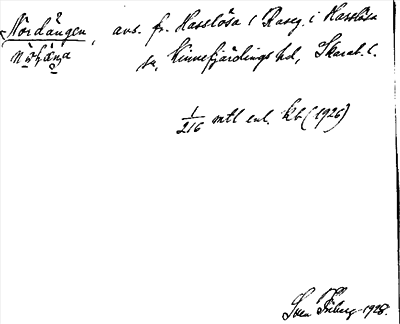 Nordängen, avs. fr. Hasslösa 1 Raseg. i Hasslösa
sn, Kinnefjärdings hd, Skarab. l.
1/216 mtl enl. kb (1926)
Sven Friberg 1928.